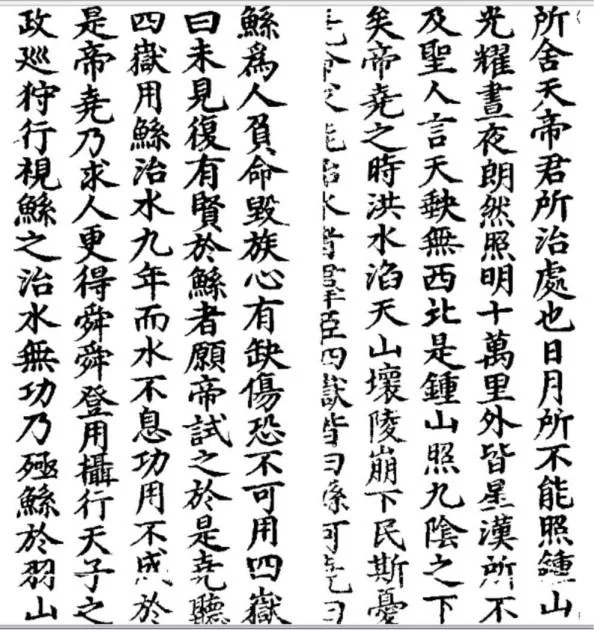 所舍天帝君所治處也日月所不能照鍾山
光耀晝夜朗然照明十萬里外皆星漢所不
及聖人言天缺無西北是鍾山照九陰之下
矣帝堯之時洪水滔天山壞陵崩下民斯憂
堯命求能治水者羣臣四嶽皆曰鯀可堯曰
鯀爲人負命毀族心有缺傷恐不可用四嶽
曰未見復有賢於鯀者願帝試之於是堯聽
四嶽用鯀治水九年而水不息功用不成於
是帝堯乃求人更得舜舜登用攝行天子之
政巡狩行視鯀之治水無功乃殛鯀於羽山